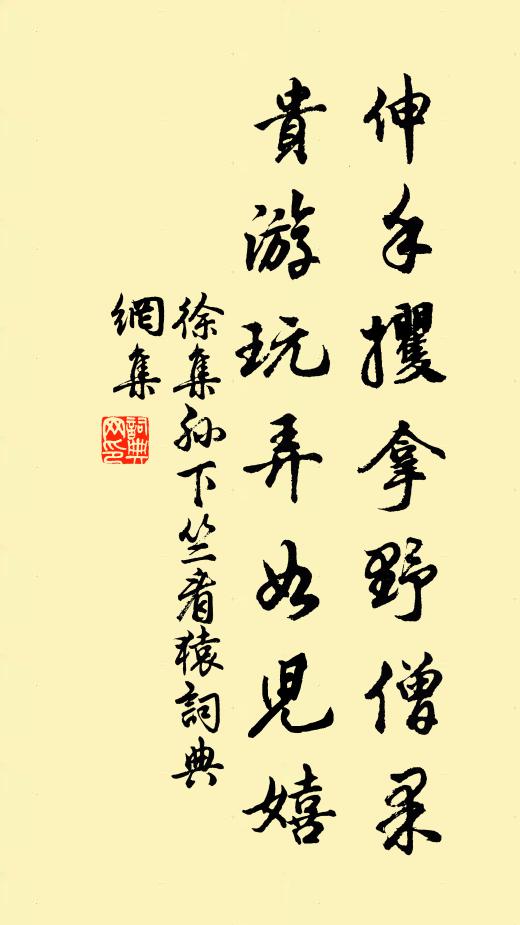 伸手攫拿野僧果
貴游玩弄如兒嬉
徐集孙下竺看猿詞典
網集
詞典
网印